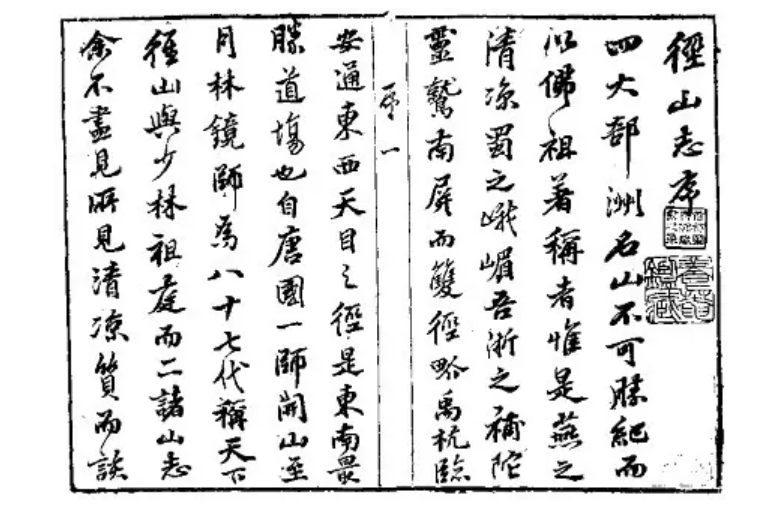 徑山志序
四大部洲名山不可勝紀而
以佛祖著稱者惟是燕之
清涼蜀之峨嵋吾浙之補陀
靈鷲南屏而雙徑略禹杭臨
序一
安通東西天目之徑是東南最
勝道塲也自唐國一師開山至
月林鏡師爲八十七代稱天下
徑山與少林祖庭而二諸山志
余不盡見所見清涼質而談